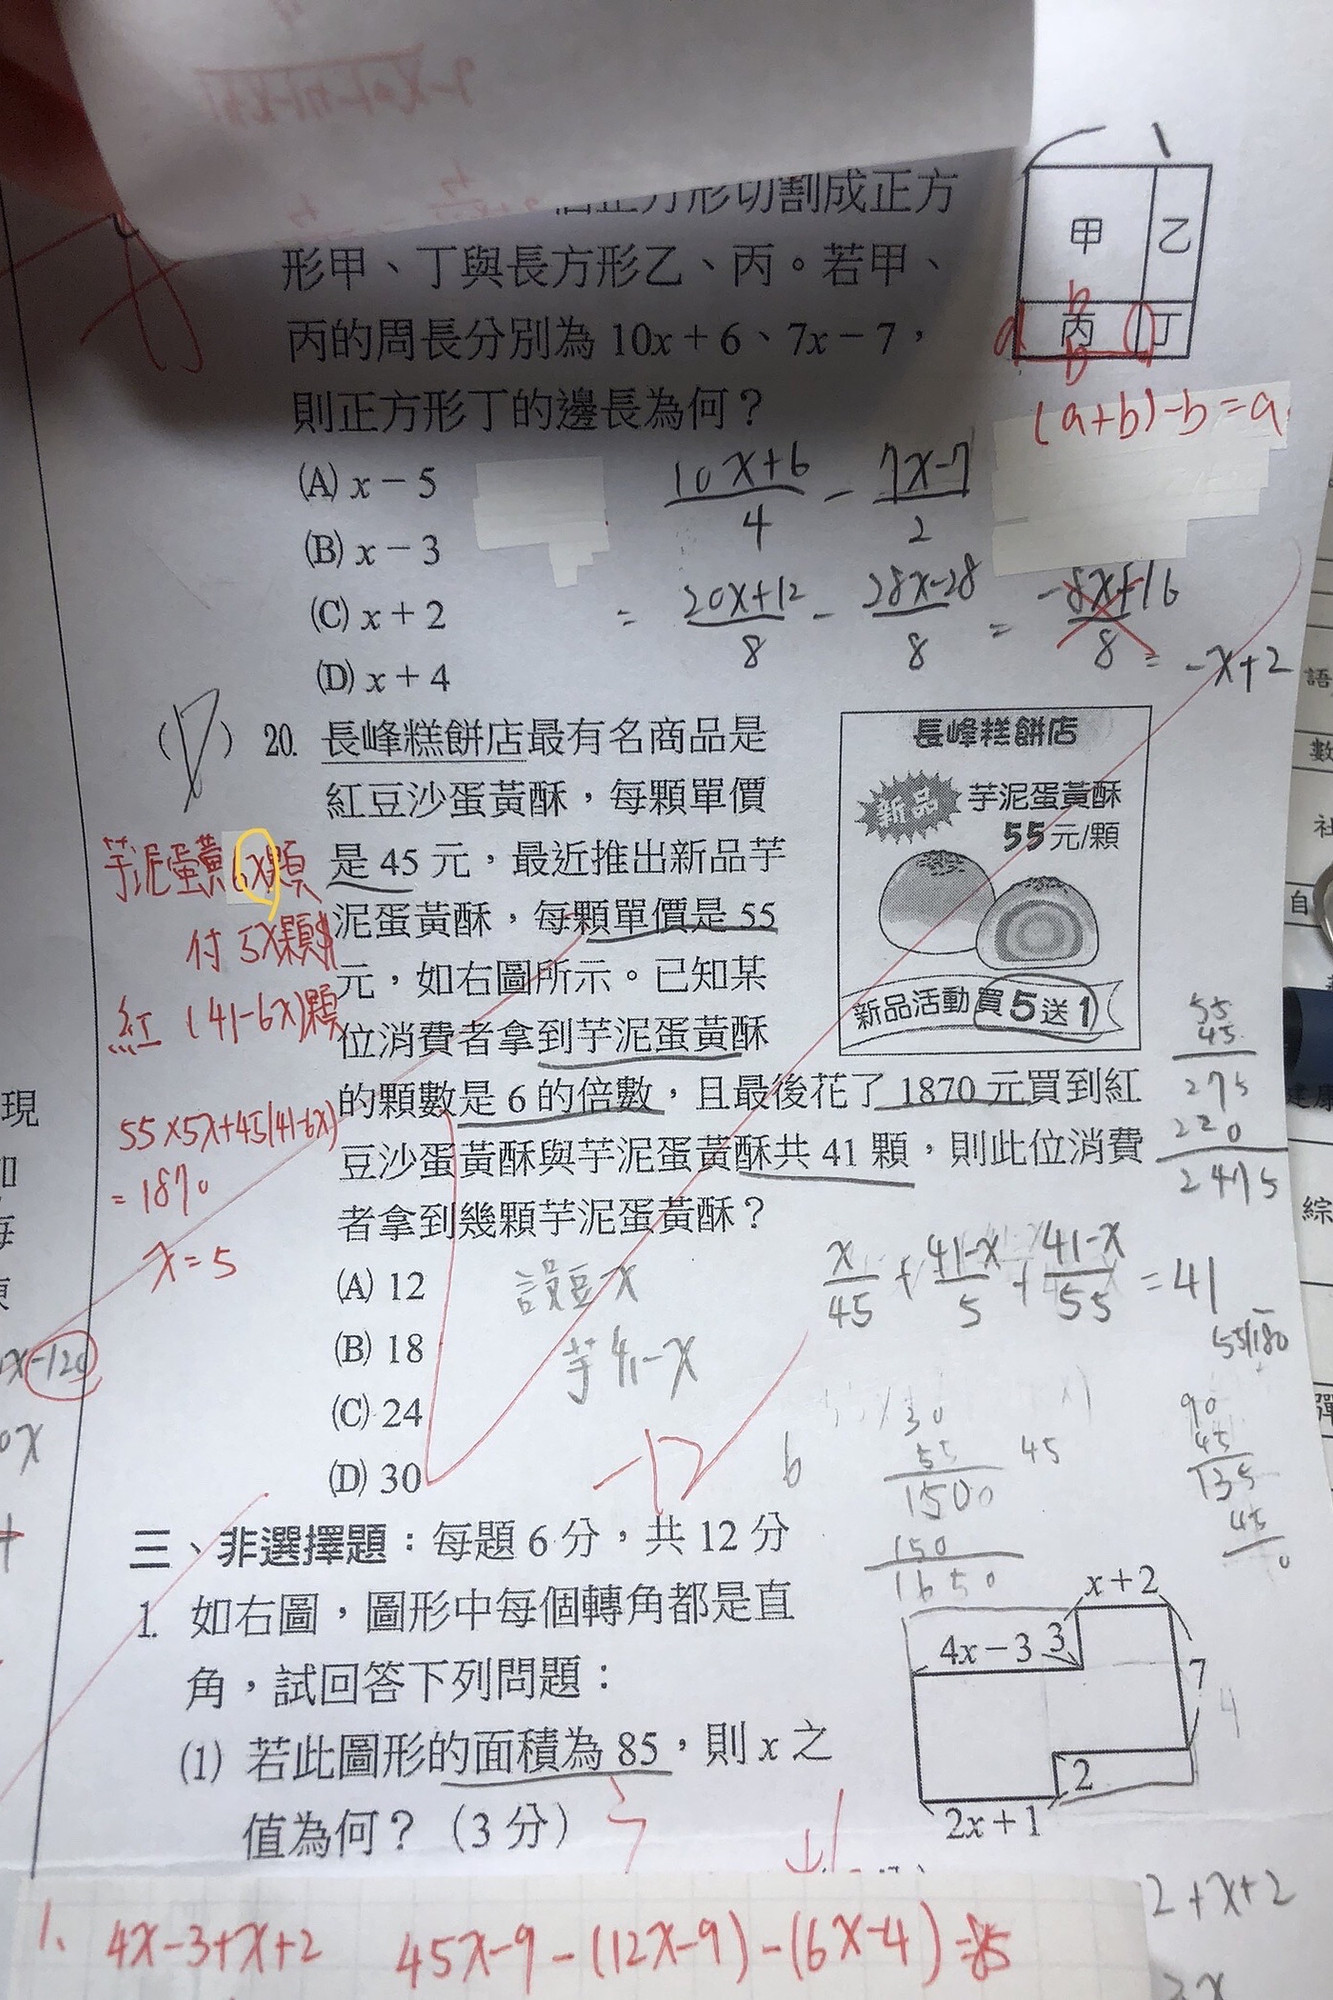 正方形切割成正方
形甲、丁與長方形乙、丙。若甲、
丙的周長分別為 10x + 6、7x − 7，
則正方形丁的邊長為何？
(A) x − 5
(B) x − 3
(C) x + 2
(D) x + 4
甲 乙
丙 丁
a b b a
(a+b)-b=a
10x+6/4 - 7x-7/2
= 20x+12/8 - 28x-28/8 = -8x+16/8 = -x+2
( ) 20. 長峰糕餅店最有名商品是
紅豆沙蛋黃酥，每顆單價
是 45 元，最近推出新品芋
泥蛋黃酥，每顆單價是 55
元，如右圖所示。已知某
位消費者拿到芋泥蛋黃酥
的顆數是 6 的倍數，且最後花了 1870 元買到紅
豆沙蛋黃酥與芋泥蛋黃酥共 41 顆，則此位消費
者拿到幾顆芋泥蛋黃酥？
(A) 12
(B) 18
(C) 24
(D) 30
長峰糕餅店
新品 芋泥蛋黃酥
55 元/顆
新品活動買 5 送 1
芋泥蛋黃6x顆
付 5x顆$
紅 (41-6x)顆
55×5x+45(41-6x)
=1870
x=5
設豆 x
芋 41-x
x/45 + 41-x/5 + 41-x/55 = 41
55
45
275
220
2475
55/180
-12
6
30
55
1500
150
1650
45
90
45
135
45
0
三、非選擇題：每題 6 分，共 12 分
1. 如右圖，圖形中每個轉角都是直
角，試回答下列問題：
(1) 若此圖形的面積為 85，則 x 之
值為何？（3 分）
x + 2
4x − 3 3
7
4
2
2x + 1
1. 4x-3+x+2 45x-9-(12x-9)-(6x-4)=85
2+x+2